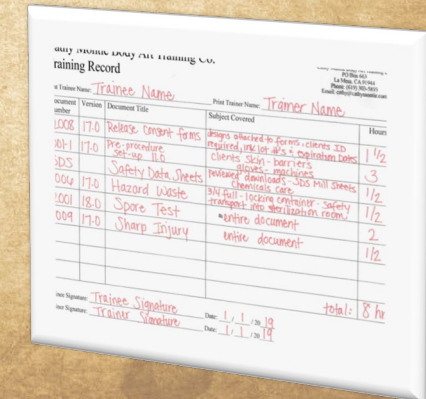 athy Montie Body Art Training Co.
raining Record
PO Box 663
La Mesa, CA 91944
Phone: (619) 303-5855
Email: cathy@cathymontie.com
nt Trainee Name: Trainee Name
Print Trainer Name: Trainer Name
ocument
umber
Version
Document Title
Subject Covered
Hours
L008 17.0 Release Consent forms
designs attached to forms, clients ID
required, ink lot #'s + expiration dates
1 1/2
001-1 17.0 Pre-procedure
set-up 11.0
clients skin - barriers
gloves - machines
3
SDS Safety Data Sheets
reviewed downloads - SDS Mill Sheets
chemicals care
1/2
006 17.0 Hazard Waste
3/4 full - locking container - safety
transport into sterilization room
1/2
2001 18.0 Spore Test
entire document
2
009 17.0 Sharp Injury
entire document
1/2
total: 8 hr
inee Signature: Trainee Signature
Date: 1 / 1 / 20 19
iner Signature: Trainer Signature
Date: 1 / 1 / 20 19